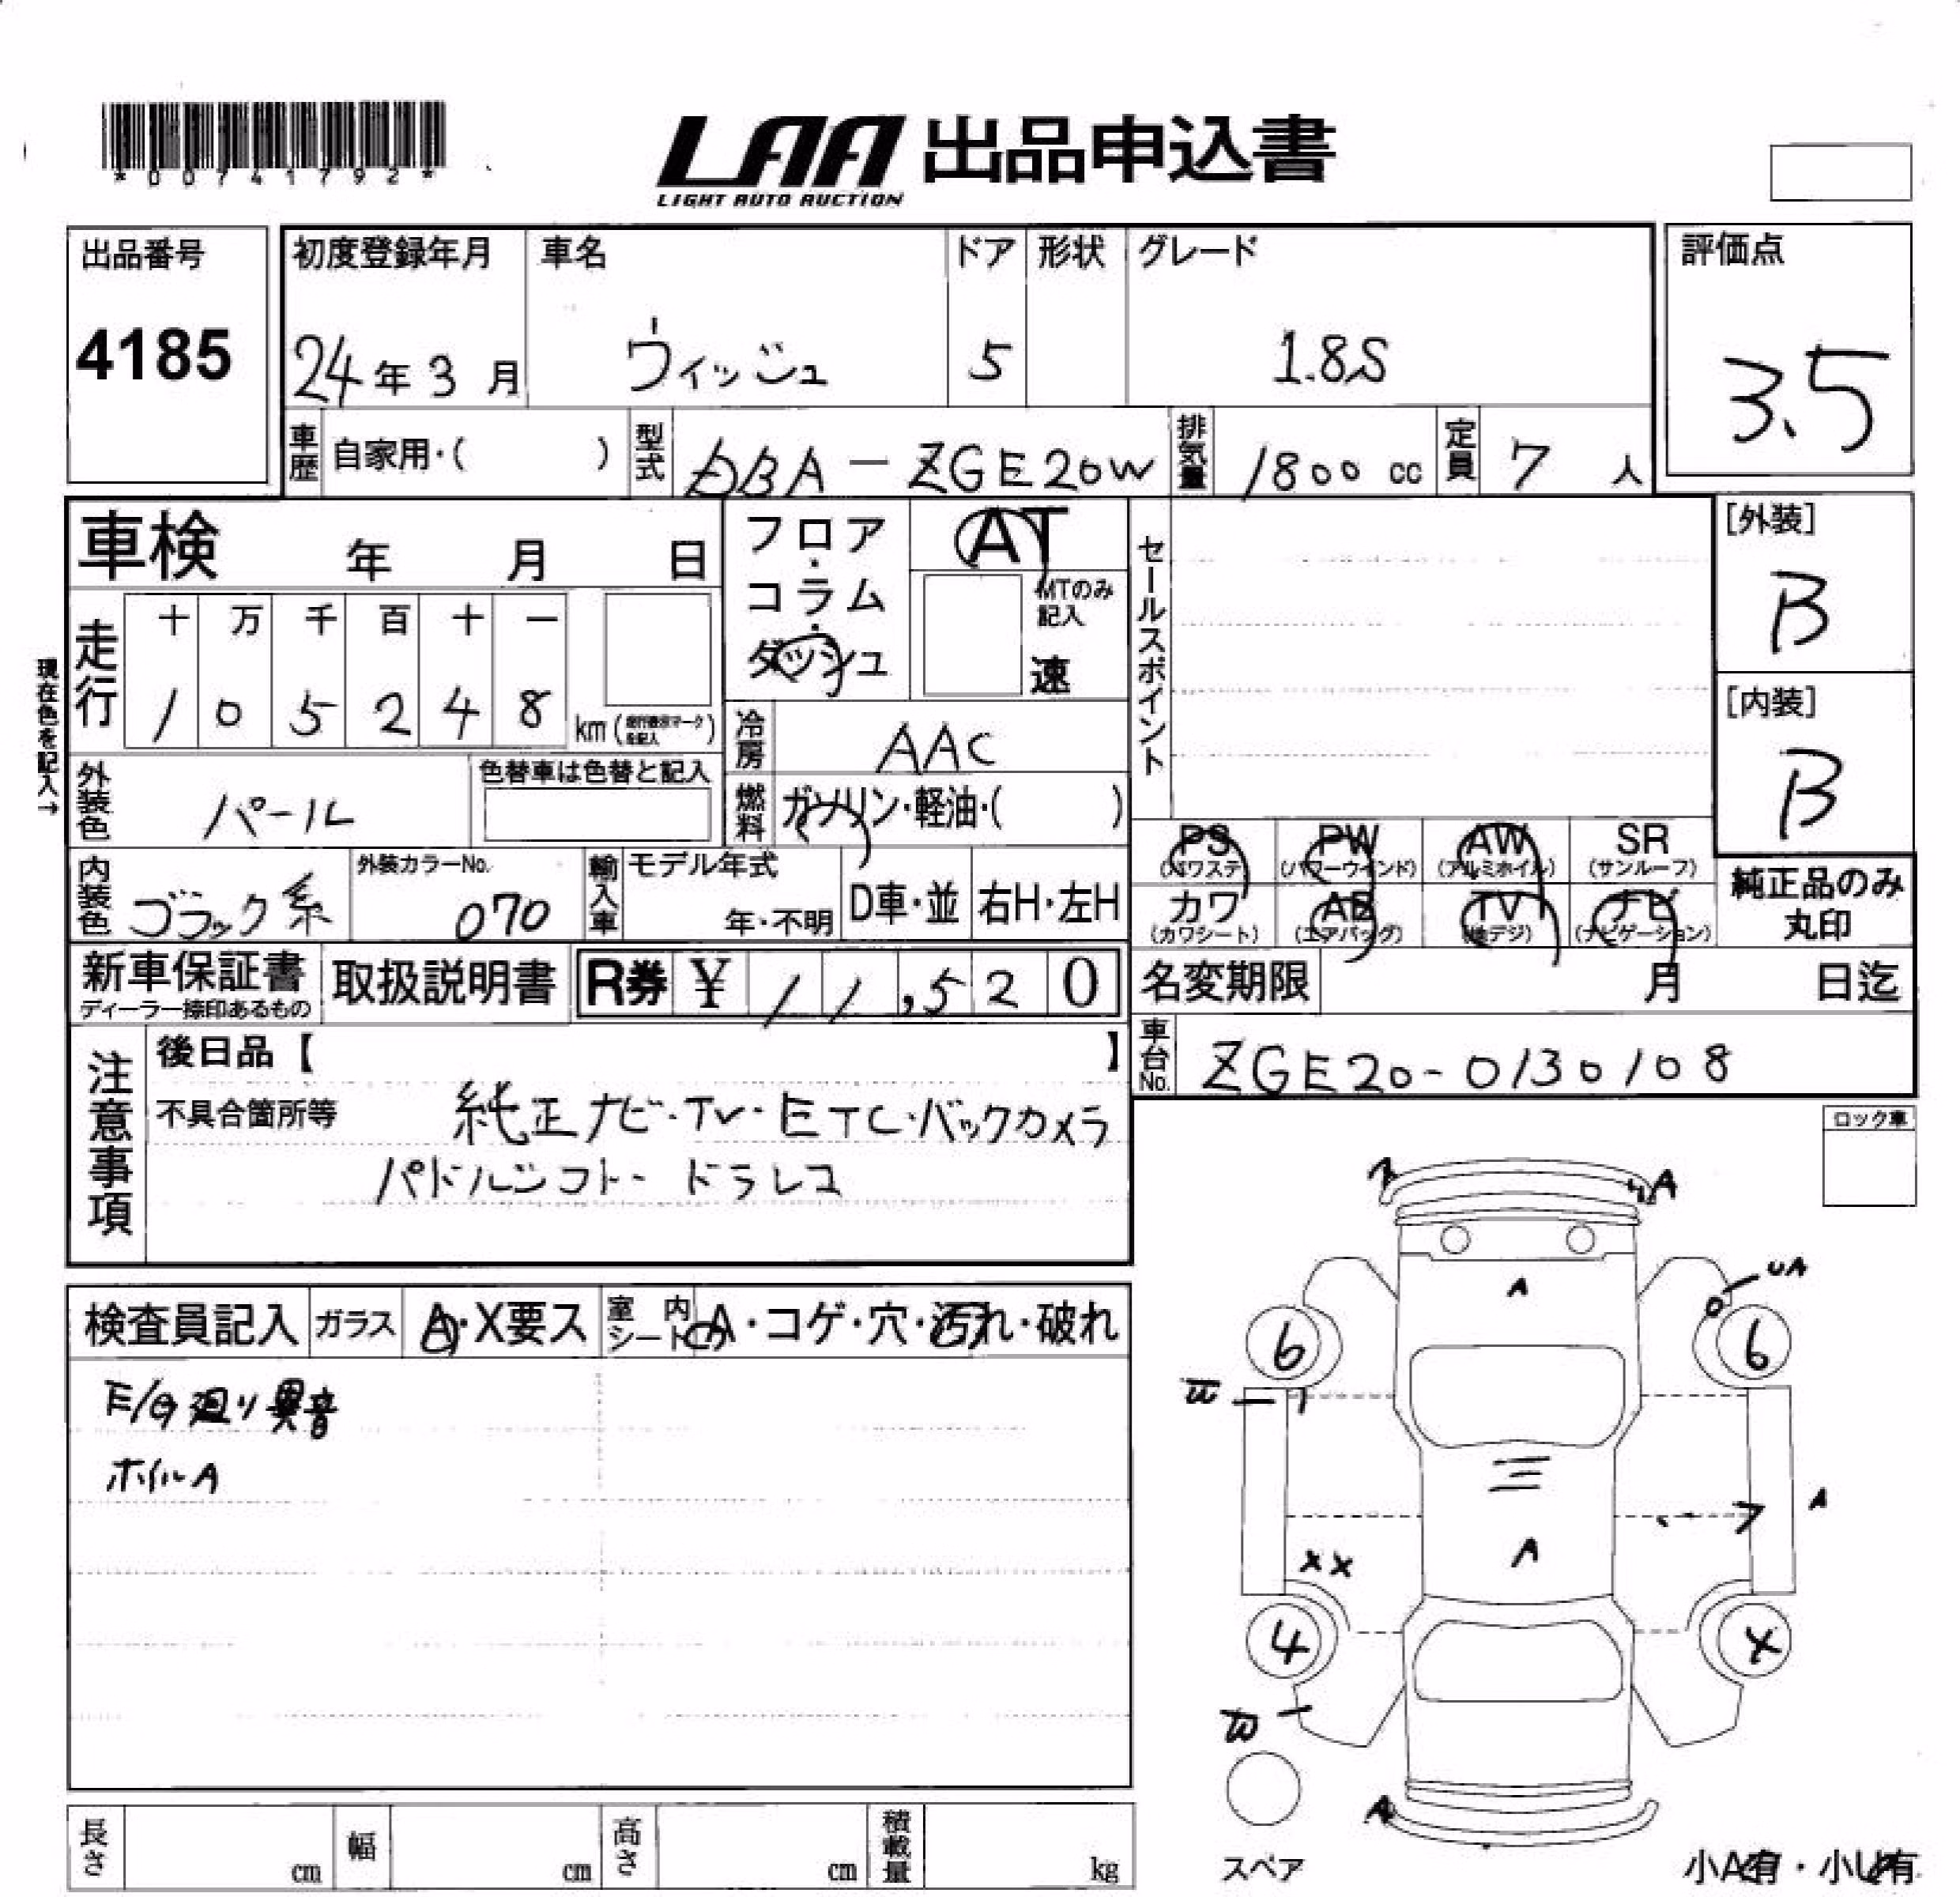 *00741792*
LAA 出品申込書
LIGHT AUTO AUCTION
出品番号
4185
初度登録年月
24年3月
車名
ウィッシュ
ドア
5
形状
グレード
1.8S
評価点
3.5
車歴
自家用・( )
型式
DBA-ZGE20W
排気量
1800 cc
定員
7 人
車検 年 月 日
フロア・コラム・ダッシュ
AT
MTのみ記入
速
セールスポイント
[外装]
B
[内装]
B
現在色を記入→
走行
十 万 千 百 十 一
1 0 5 2 4 8
km
冷房
AAC
燃料
ガソリン・軽油・( )
外装色
パール
色替車は色替と記入
内装色
ブラック系
外装カラーNo.
070
輸入車
モデル年式
年・不明
D車・並
右H・左H
PS
(パワステ)
PW
(パワーウインド)
AW
(アルミホイル)
SR
(サンルーフ)
カワ
(カワシート)
AB
(エアバッグ)
TV
(地デジ)
ナビ
(ナビゲーション)
純正品のみ
丸印
新車保証書
ディーラー捺印あるもの
取扱説明書
R券 ¥ 11,520
名変期限 月 日迄
車台No.
ZGE20-0130108
注意事項
後日品【 】
不具合箇所等
純正ナビ・TV・ETC・バックカメラ
パドルシフト・ドラレコ
ロック車
検査員記入
ガラス
A・X要ス
室内シート
A・コゲ・穴・汚れ・破れ
E/G廻り異音
ホイルA
A
A
UA
6
6
A
XX
A
4
A
スペア
小A有・小U有
長さ cm
幅 cm
高さ cm
積載量 kg